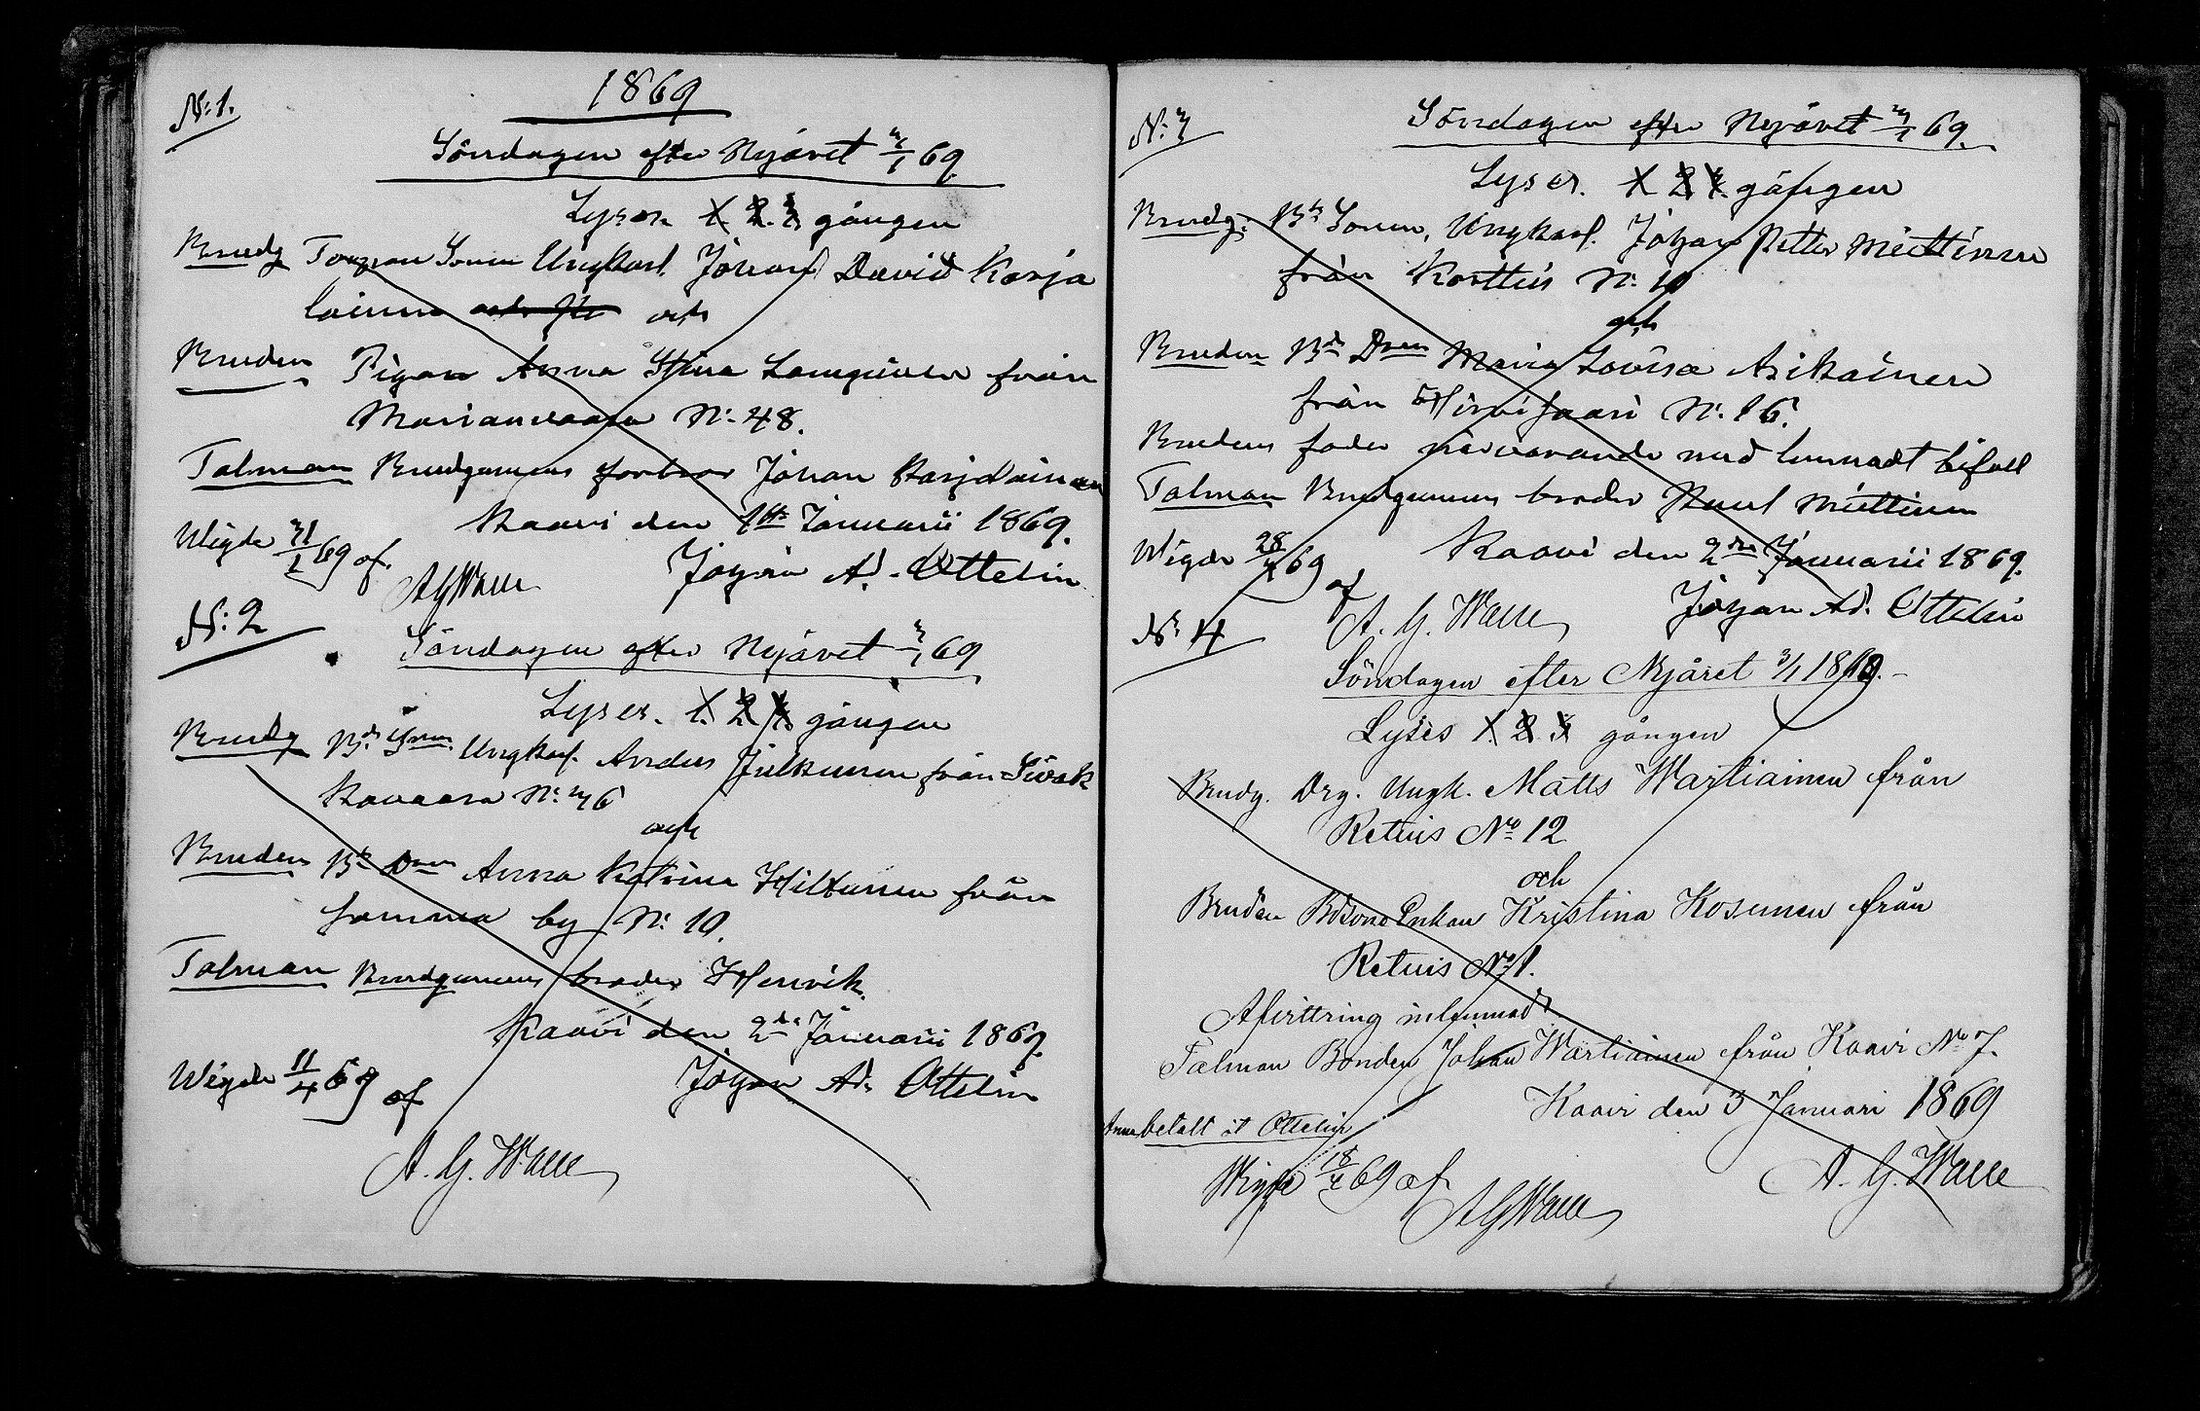 1869
N:1.
Söndagen efter Nyåret 3/1 69.
Lyses 1. 2. 3. gången
Brudg Torpare Sonen Ungkarl. Johan David Karja
lainen och
Bruden Pigan Anna Stina from
Marianvaara N: 48.
Talman Brudgumens farbror Johan Karjalainen
Kaavi den 1ste Januarii 1869.
Wigde 31/1 69 af.
AGWalle Johan Ad. Ottelin
N:2
Söndagen efter Nyåret 3/1 69
Lyses. 1. 2. 3. gången
Brudg Bds Sonen Ungkarl. Anders Julkunen från Siwak
kavaara N: 36
och
Bruden Bds Dren Anna Katrina Hiltunen från
samma by N: 10.
Talman Brudgumens broder Henrik.
Kaavi den 2dre Januarii 1869.
Wigde 11/4 69 af Johan Ad. Ottelin
A. G. Walle
N:3
Söndagen efter Nyåret 3/1 69.
Lyses. 1 2 3. gången
Brudg: Bds Sonen, Ungkarl. Johan Petter Miettinen
från Kortteis N: 10
och
Bruden Bds Dren Maria Lovisa Asikainen
från Hirvisaari N: 16.
Brudens fader närvarande med lemnadt bifall
Talman Brudgumens broder Paul Miettinen
Kaavi den 2dre Januarii 1869.
Wigde 28/3 69 af
A. G. Walle Johan Ad. Ottelin
No 4
Söndagen efter Nyåret 3/1 1869.
Lyses 1. 2. 3 gången
Brudg. Drg. Ungk. Matts Wartiainen från
Retuis No 12
och
Bruden Bdsona Enkan Kristina Kosunen från
Retuis No 1.
Afvittring inlemnad.
Talman Bonden Johan Wartiainen från Kaavi No 7.
Kaavi den 3 Januari 1869
betalt åt Ottelin
A. G. Walle
Wigde 18/4 69 af
AGWalle